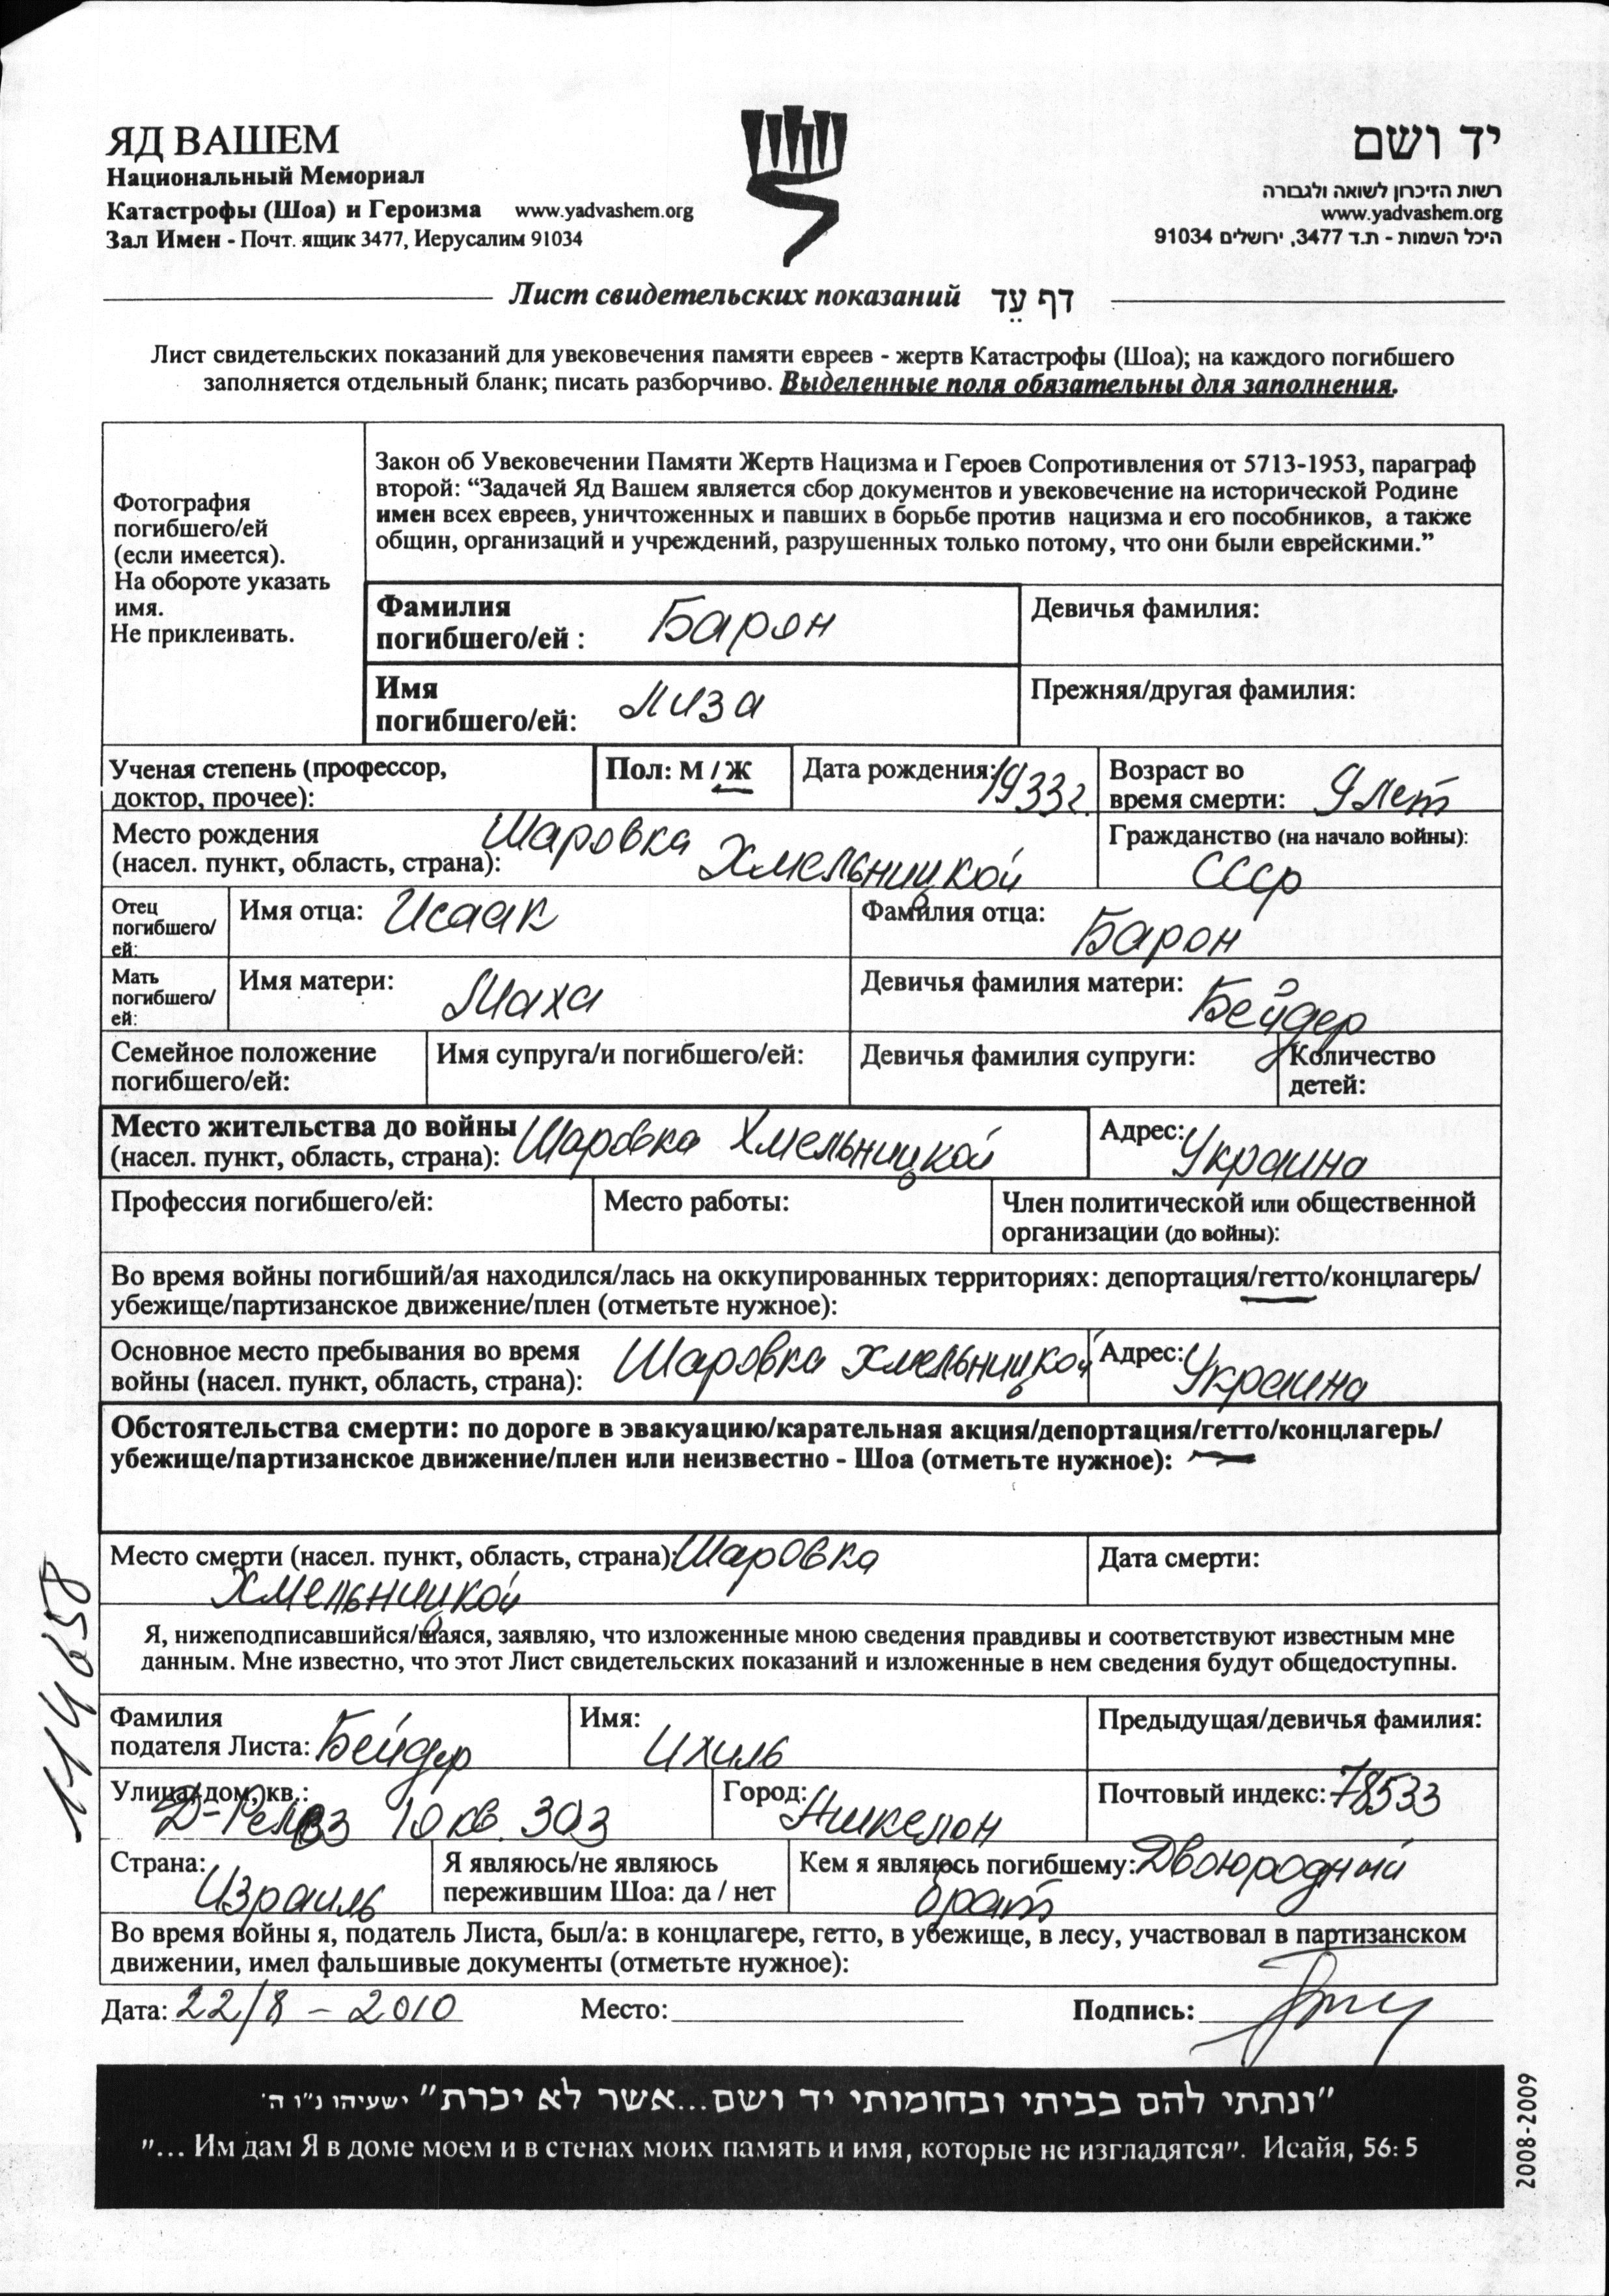 ЯД ВАШЕМ
Национальный Мемориал
Катастрофы (Шоа) и Героизма www.yadvashem.org
Зал Имен - Почт. ящик 3477, Иерусалим 91034
יד ושם
רשות הזיכרון לשואה ולגבורה
www.yadvashem.org
היכל השמות - ת.ד 3477, ירושלים 91034
Лист свидетельских показаний דף עֵד
Лист свидетельских показаний для увековечения памяти евреев - жертв Катастрофы (Шоа); на каждого погибшего
заполняется отдельный бланк; писать разборчиво. Выделенные поля обязательны для заполнения.
Фотография
погибшего/ей
(если имеется).
На обороте указать
имя.
Не приклеивать.
Закон об Увековечении Памяти Жертв Нацизма и Героев Сопротивления от 5713-1953, параграф
второй: “Задачей Яд Вашем является сбор документов и увековечение на исторической Родине
имен всех евреев, уничтоженных и павших в борьбе против нацизма и его пособников, а также
общин, организаций и учреждений, разрушенных только потому, что они были еврейскими.”
Фамилия
погибшего/ей : Барон
Девичья фамилия:
Имя
погибшего/ей: Лиза
Прежняя/другая фамилия:
Ученая степень (профессор,
доктор, прочее):
Пол: М / Ж
Дата рождения: 1933г.
Возраст во
время смерти: 9 лет
Место рождения Шаровка
(насел. пункт, область, страна): Хмельницкой
Гражданство (на начало войны):
СССР
Отец
погибшего/
ей:
Имя отца: Исаак
Фамилия отца: Барон
Мать
погибшего/
ей:
Имя матери: Маха
Девичья фамилия матери: Бейдер
Семейное положение
погибшего/ей:
Имя супруга/и погибшего/ей:
Девичья фамилия супруги:
Количество
детей:
Место жительства до войны
(насел. пункт, область, страна): Шаровка Хмельницкой
Адрес: Украина
Профессия погибшего/ей:
Место работы:
Член политической или общественной
организации (до войны):
Во время войны погибший/ая находился/лась на оккупированных территориях: депортация/гетто/концлагерь/
убежище/партизанское движение/плен (отметьте нужное):
Основное место пребывания во время
войны (насел. пункт, область, страна): Шаровка Хмельницкой
Адрес: Украина
Обстоятельства смерти: по дороге в эвакуацию/карательная акция/депортация/гетто/концлагерь/
убежище/партизанское движение/плен или неизвестно - Шоа (отметьте нужное):
Место смерти (насел. пункт, область, страна): Шаровка
Хмельницкой
Дата смерти:
Я, нижеподписавшийся/шаяся, заявляю, что изложенные мною сведения правдивы и соответствуют известным мне
данным. Мне известно, что этот Лист свидетельских показаний и изложенные в нем сведения будут общедоступны.
Фамилия
подателя Листа: Бейдер
Имя:
Ихиль
Предыдущая/девичья фамилия:
Улица, дом, кв.:
10 кв. 303
Город:
Ашкелон
Почтовый индекс: 78533
Страна:
Израиль
Я являюсь/не являюсь
пережившим Шоа: да / нет
Кем я являюсь погибшему: Двоюродный
брат
Во время войны я, податель Листа, был/а: в концлагере, гетто, в убежище, в лесу, участвовал в партизанском
движении, имел фальшивые документы (отметьте нужное):
Дата: 22/8 - 2010
Место:
Подпись:
"ונתתי להם בביתי ובחומותי יד ושם...אשר לא יכרת" ישעיהו נ"ו ה'
"... Им дам Я в доме моем и в стенах моих память и имя, которые не изгладятся". Исайя, 56: 5
2008-2009
114658